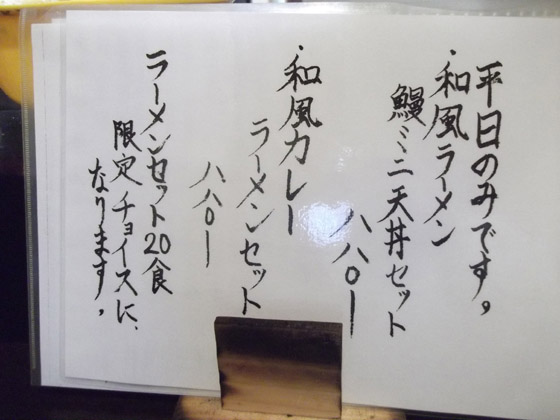 平日のみです。
・和風ラーメン
鰻ミニ天丼セット
八八〇ー
・和風カレー
ラーメンセット
八八〇ー
ラーメンセット20食
限定チョイスに、
なります。